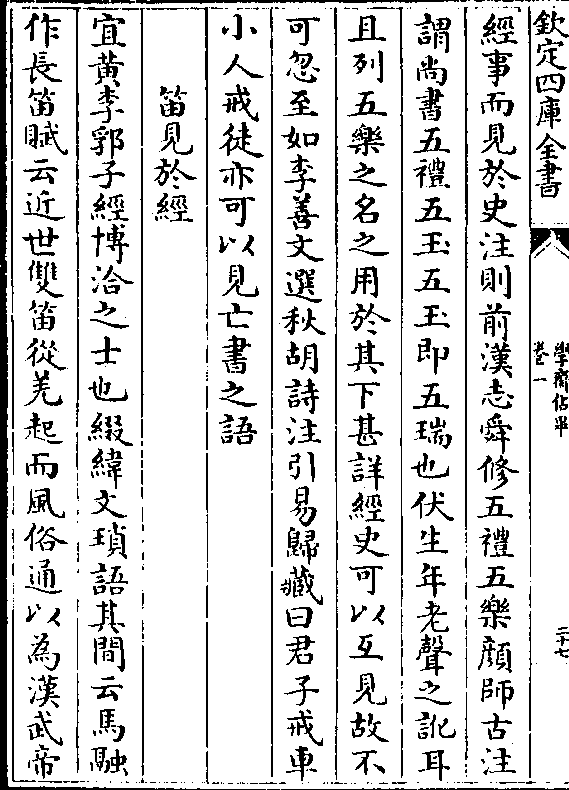 欽定四庫全書
學齋佔畢
卷一
二十七
經事而見於史注則前漢志舜修五禮五樂顔師古注
謂尚書五禮五玉五玉即五瑞也伏生年老聲之訛耳
且列五樂之名之用於其下甚詳經史可以互見故不
可忽至如李善文選秋胡詩注引易歸藏曰君子戒車
小人戒徒亦可以見亡書之語
笛見於經
宜黄李郭子經博洽之士也綴緯文瑣語其間云馬融
作長笛賦云近世雙笛從羌起而風俗通以為漢武帝